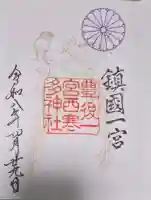 鎮國一宮
豊後一
宮西寒
多神社
令和年四月日